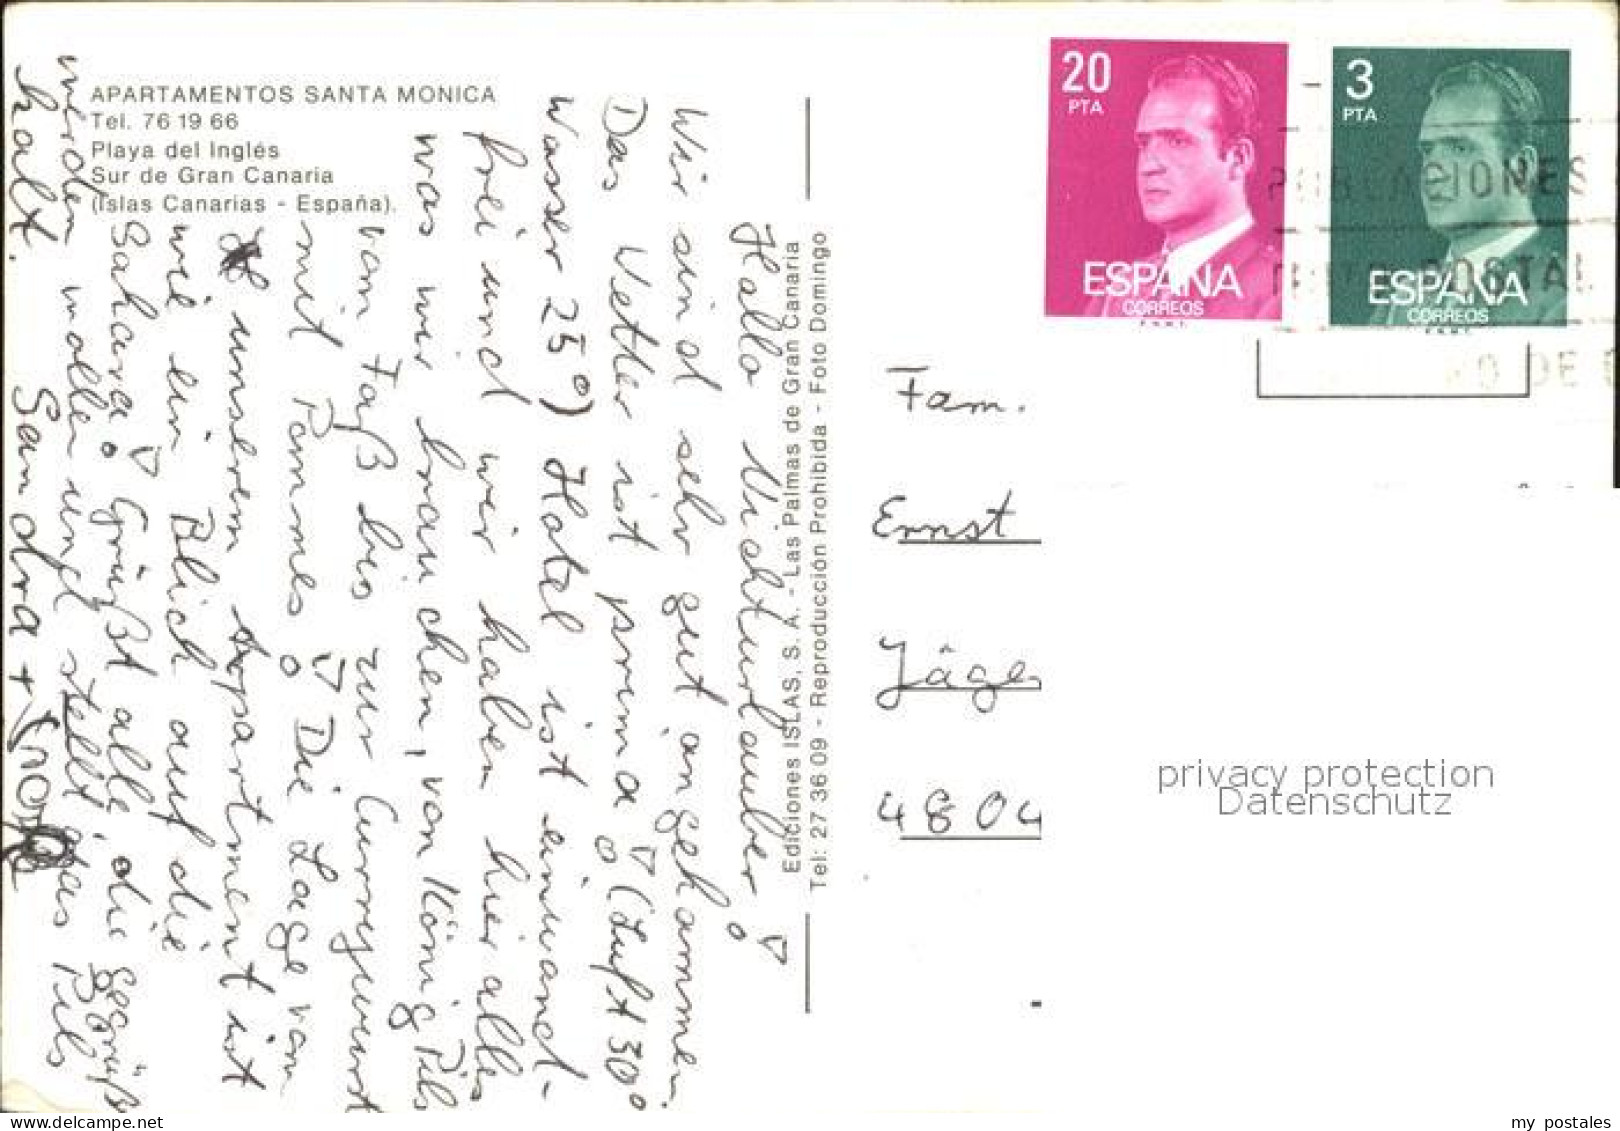 APARTAMENTOS SANTA MONICA
Tel. 76 19 66
Playa del Inglés
Sur de Gran Canaria
(Islas Canarias - España).
Hallo Nichturlauber!
Wir sind sehr gut angekommen.
Das Wetter ist prima! (Luft 30°
Wasser 25°) Hotel ist einwand-
frei und wir haben hier alles
was wir brauchen, von König Pils
vom Faß bis zur Currywurst
mit Pommes! Die Lage von
unserem Appartment ist
wie ein Blick auf die
Sahara! Grüßt alle, die gegrüßt
werden wollen und stellt das Pils
kalt. Sandra +
Ediciones ISLAS, S. A. - Las Palmas de Gran Canaria
Tel: 27 36 09 - Reproducción Prohibida - Foto Domingo
20
PTA
ESPAÑA
CORREOS
F.N.M.T.
3
PTA
ESPAÑA
CORREOS
F.N.M.T.
Fam.
Ernst
Jäger
4804
privacy protection
Datenschutz
my postales